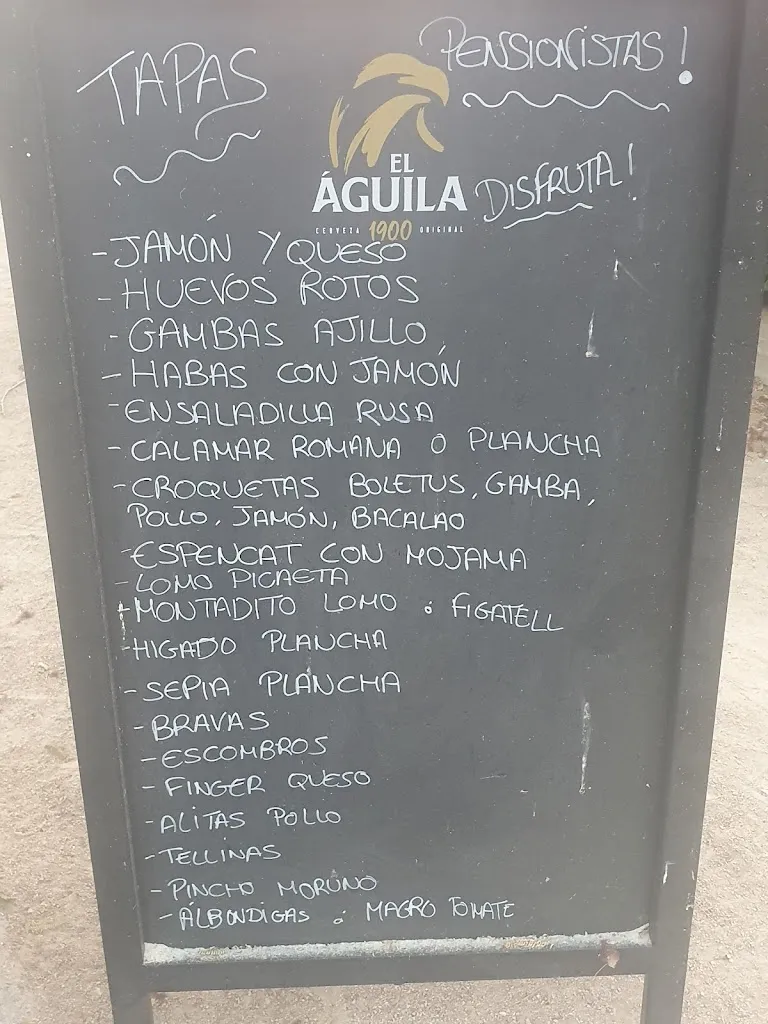 TAPAS
PENSIONISTAS!
EL
ÁGUILA
CERVEZA 1900 ORIGINAL
DISFRUTA!
-JAMÓN Y QUESO
-HUEVOS ROTOS
-GAMBAS AJILLO
-HABAS CON JAMÓN
-ENSALADILLA RUSA
-CALAMAR ROMANA O PLANCHA
-CROQUETAS BOLETUS, GAMBA,
POLLO, JAMÓN, BACALAO
-ESPENCAT CON MOJAMA
-LOMO PICAETA
-MONTADITO LOMO ó FIGATELL
-HIGADO PLANCHA
-SEPIA PLANCHA
-BRAVAS
-ESCOMBROS
-FINGER QUESO
-ALITAS POLLO
-TELLINAS
-PINCHO MORUNO
-ÁLBONDIGAS ó MAGRO TOMATE